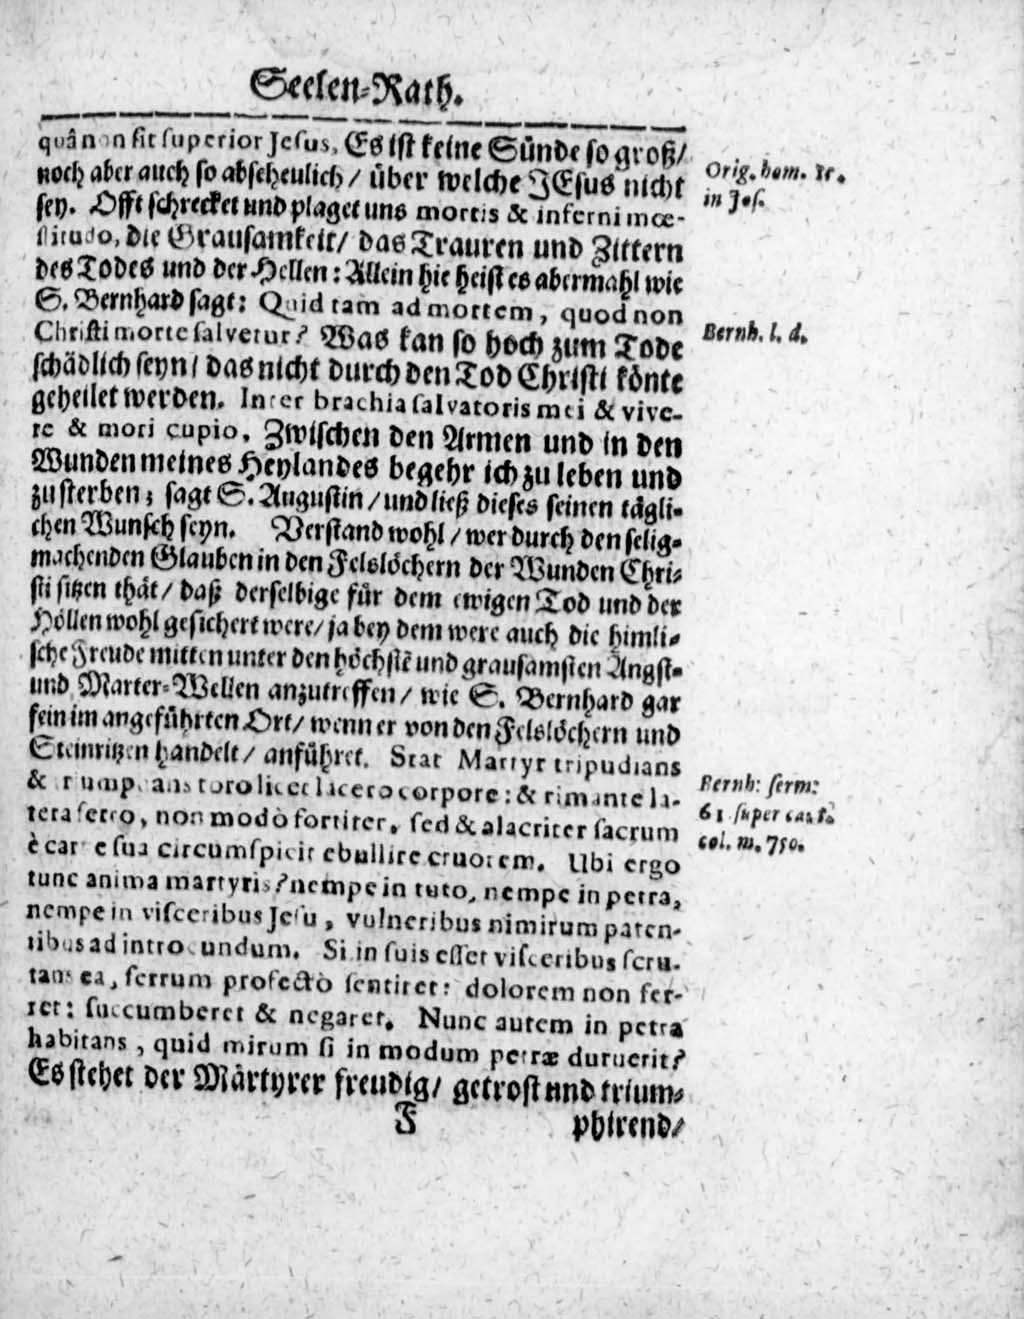 Seelen-Rath.
quâ non sit superior Jesus. Es ist keine Sünde so groß/
noch aber auch so abscheulich/ über welche JEsus nicht
sey. Offt schrecket und plaget uns mortis & inferni mœ-
stitudo, die Grausamkeit/ das Trauren und Zittern
des Todes und der Hellen: Allein hie heist es abermahl wie
S. Bernhard sagt: Quid tam ad mortem, quod non
Christi morte salvetur? Was kan so hoch zum Tode
schädlich seyn/ das nicht durch den Tod Christi könte
geheilet werden. Inter brachia salvatoris mei & vive-
re & mori cupio, Zwischen den Armen und in den
Wunden meines Heylandes begehr ich zu leben und
zu sterben; sagt S. Augustin/ und ließ dieses seinen tägli-
chen Wunsch seyn. Verstand wohl/ wer durch den selig-
machenden Glauben in den Felslöchern der Wunden Chri-
sti sitzen thät/ daß derselbige für dem ewigen Tod und der
Höllen wohl gesichert were/ ja bey dem were auch die himli-
sche Freude mitten unter den höchstẽ und grausamsten Angst-
und Marter-Wellen anzutreffen/ wie S. Bernhard gar
fein im angeführten Ort/ wenn er von den Felslöchern und
Steinritzen handelt/ anführet. Stat Martyr tripudians
& triumphans toto licet lacero corpore: & rimante la-
tera ferro, non modò fortiter, sed & alacriter sacrum
è carne sua circumspicit ebullire cruorem. Ubi ergo
tunc anima martyris? nempe in tuto, nempe in petra,
nempe in visceribus Jesu, vulneribus nimirum paten-
tibus ad introeundum. Si in suis esset visceribus scru-
tans ea, ferrum profectò sentiret: dolorem non fer-
ret: succumberet & negaret. Nunc autem in petra
habitans, quid mirum si in modum petræ duruerit?
Es stehet der Märtyrer freudig/ getrost und trium-
F phirend/
Orig. hom.
in Jos.
Bernh. l. d.
Bernh: serm:
61 super cant.
col. m. 750.